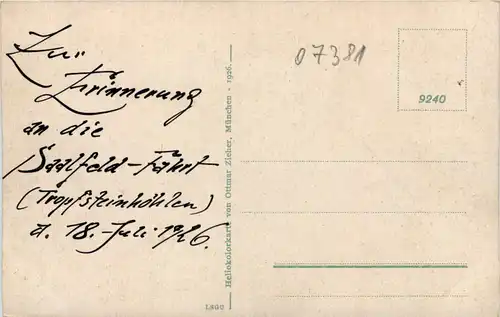 Zur
Erinnerung
an die
Saalfeld-Fahrt
(Tropfsteinhöhlen)
d. 18. Juli 1926.
Hellokolorkarte von Ottmar Zieher, München - 1926.
07381
9240